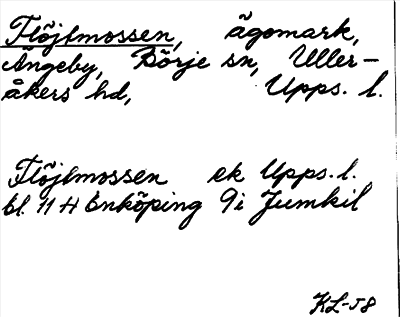 Flöjlmossen, ägomark,
Ängeby, Börje sn, Uller-
åkers hd, Upps. l.
Flöjlmossen ek Upps. l.
bl. 11 H Enköping 9i Jumkil
KL-58